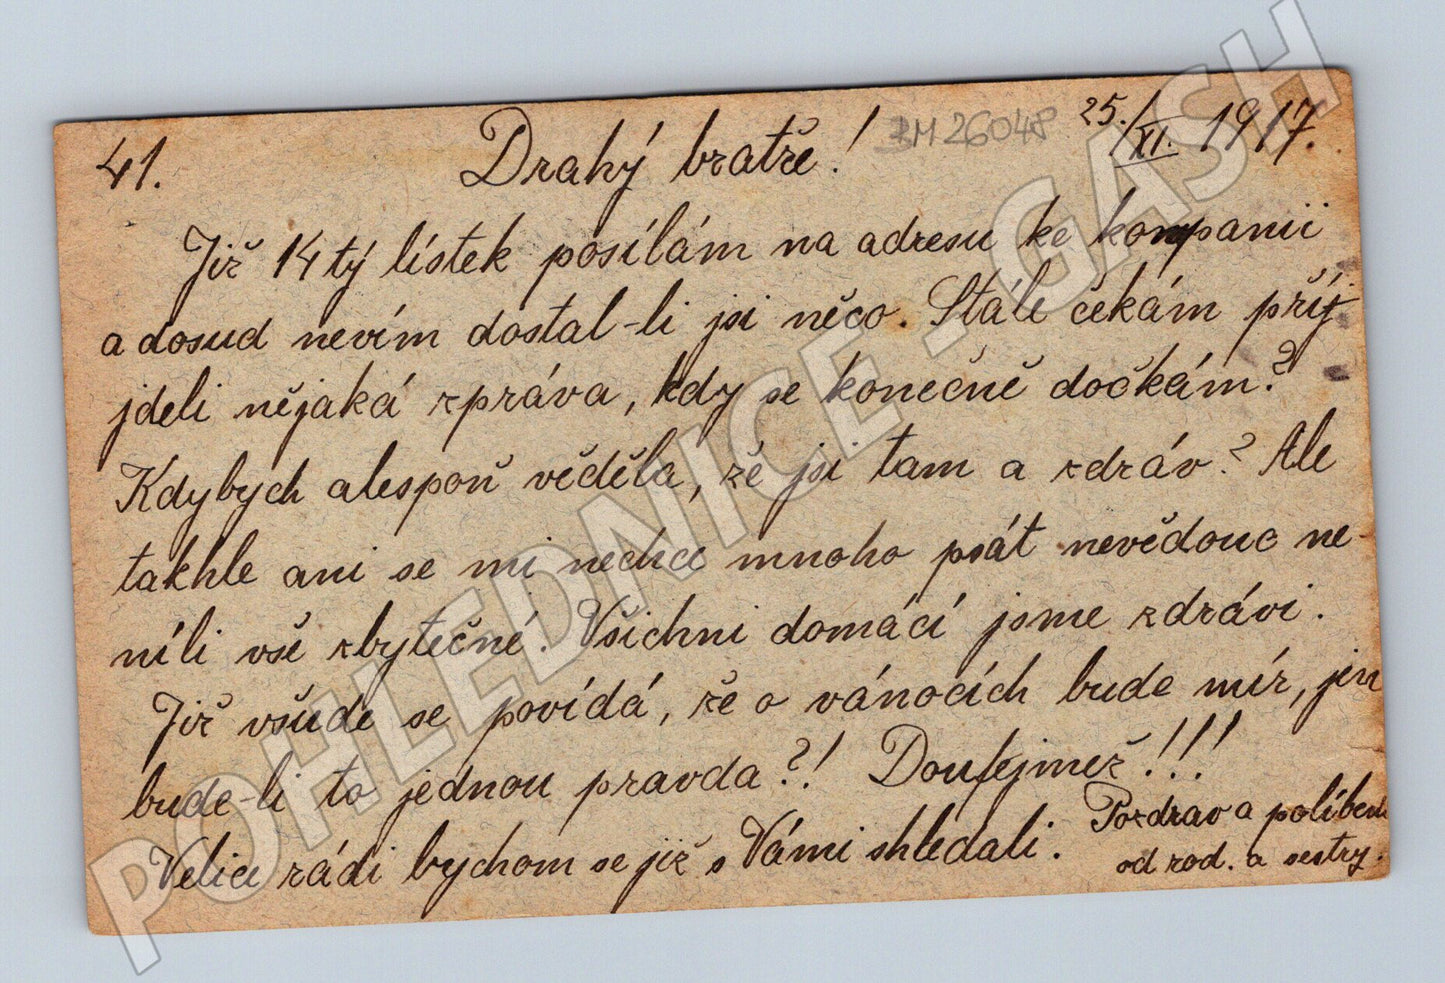 41. Drahý bratře! ZM 26048 25./XI. 1917.
Již 14tý lístek posílám na adresu ke kompanii
a dosud nevím dostal-li jsi něco. Stále čekám přij-
jdeli nějaká zpráva, kdy se konečně dočkám?
Kdybych alespoň věděla, že jsi tam a zdráv? Ale
takhle ani se mi nechce mnoho psát nevědouc ne-
níli vše zbytečné. Všichni domácí jsme zdrávi.
Již všude se povídá, že o vánocích bude mír, jen
bude-li to jednou pravda?! Doufejmež!!!
Velice rádi bychom se již s Vámi shledali. Pozdrav a políbení
od rod. a sestry.
POHLEDNICE - GASH